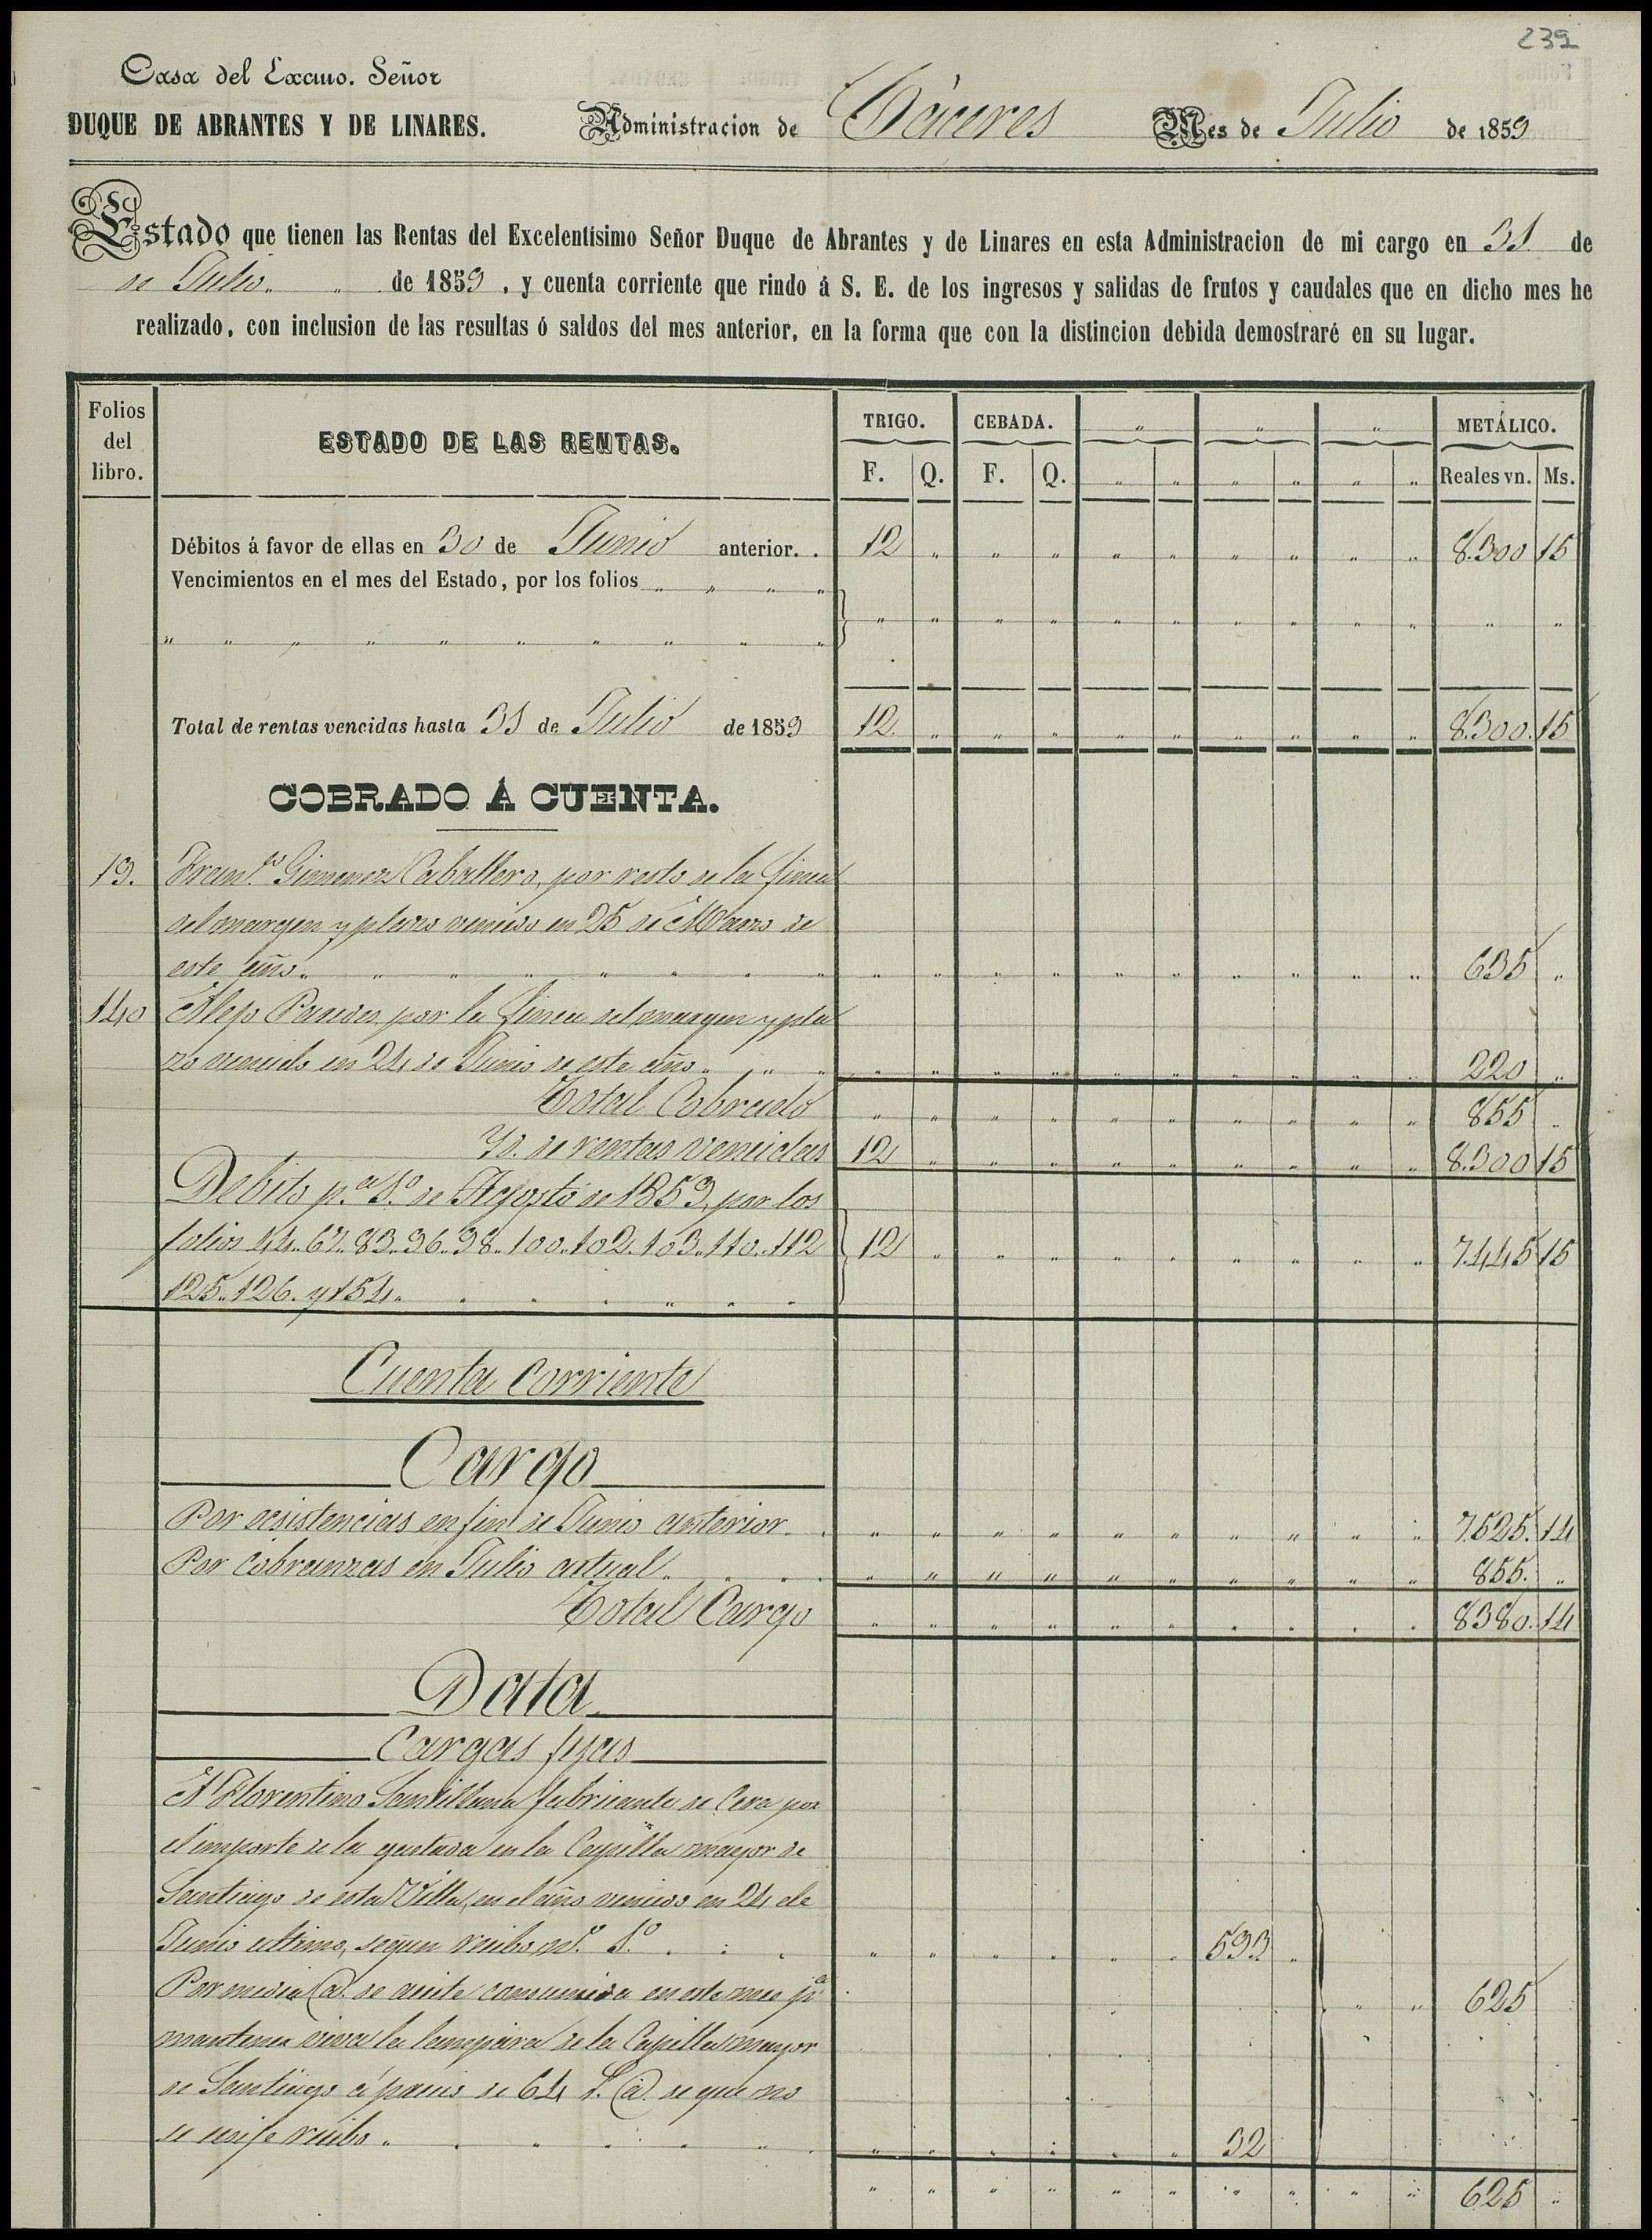 239
Casa del Excmo. Señor
DUQUE DE ABRANTES Y DE LINARES. Administracion de Cáceres Mes de Julio de 1859
Estado que tienen las Rentas del Excelentísimo Señor Duque de Abrantes y de Linares en esta Administracion de mi cargo en 31 de
de Julio. " de 1859, y cuenta corriente que rindo á S. E. de los ingresos y salidas de frutos y caudales que en dicho mes he
realizado, con inclusion de las resultas ó saldos del mes anterior, en la forma que con la distincion debida demostraré en su lugar.
Folios del libro. ESTADO DE LAS RENTAS. TRIGO. CEBADA. " " " METÁLICO.
F. Q. F. Q. " " " " " " Reales vn. Ms.
Débitos á favor de ellas en 30 de Junio anterior. . 12 " " " " " " " " " 8.300 15
Vencimientos en el mes del Estado, por los folios " " " "
" " " " " " " " " " " " " " " " " " " " " "
Total de rentas vencidas hasta 31 de Julio de 1859 12. " " " " " " " " " 8.300. 15
COBRADO Á CUENTA.
19. Franco. Gimenez Caballero, por resto de la finca
del margen y plazo vencido en 25 de Marzo de
este año. " " " " " " " " " " " " " " " " " 635 "
140 Alejo Paredes por la finca del margen y pla
zo vencido en 24 de Junio de este año. " " " " " " " " " " " " " 220 "
Total Cobrado " " " " " " " " " " 855 "
Yd. de rentas vencidas 12 " " " " " " " " " 8.300 15
Debito pa. 1o. de Agosto de 1859, por los
folios 44.. 67.. 83.. 96.. 98.. 100.. 102. 103.. 110.. 112 12 " " " " " " " " " 7.445 15
125.. 126. y 154.. " " "
Cuenta Corriente
Cargo
Por ecsistencias en fin de Junio anterior. . " " " " " " " " " " 7.525. 14
Por cobranzas en Julio actual. . . . " " " " " " " " " " 855. "
Total Cargo " " " " " " " " " " 8380. 14
Data
Cargas fijas
A Florentino Santillana fabricante de Cera por
el importe de la gastada en la Capilla mayor de
Santiago de esta Villa, en el año vencido en 24 de
Junio ultimo, segun recibo no. 1o. . . . " " " " " " 593 "
Por media @. de aceite consumida en este mes pa. " " 625
mantener viva la lampara de la Capilla mayor
de Santiago á precio de 64 r. @. de que no
se ecsije recibo. " " " " " " " " " " 32
" " " " " " " " " " 625 "